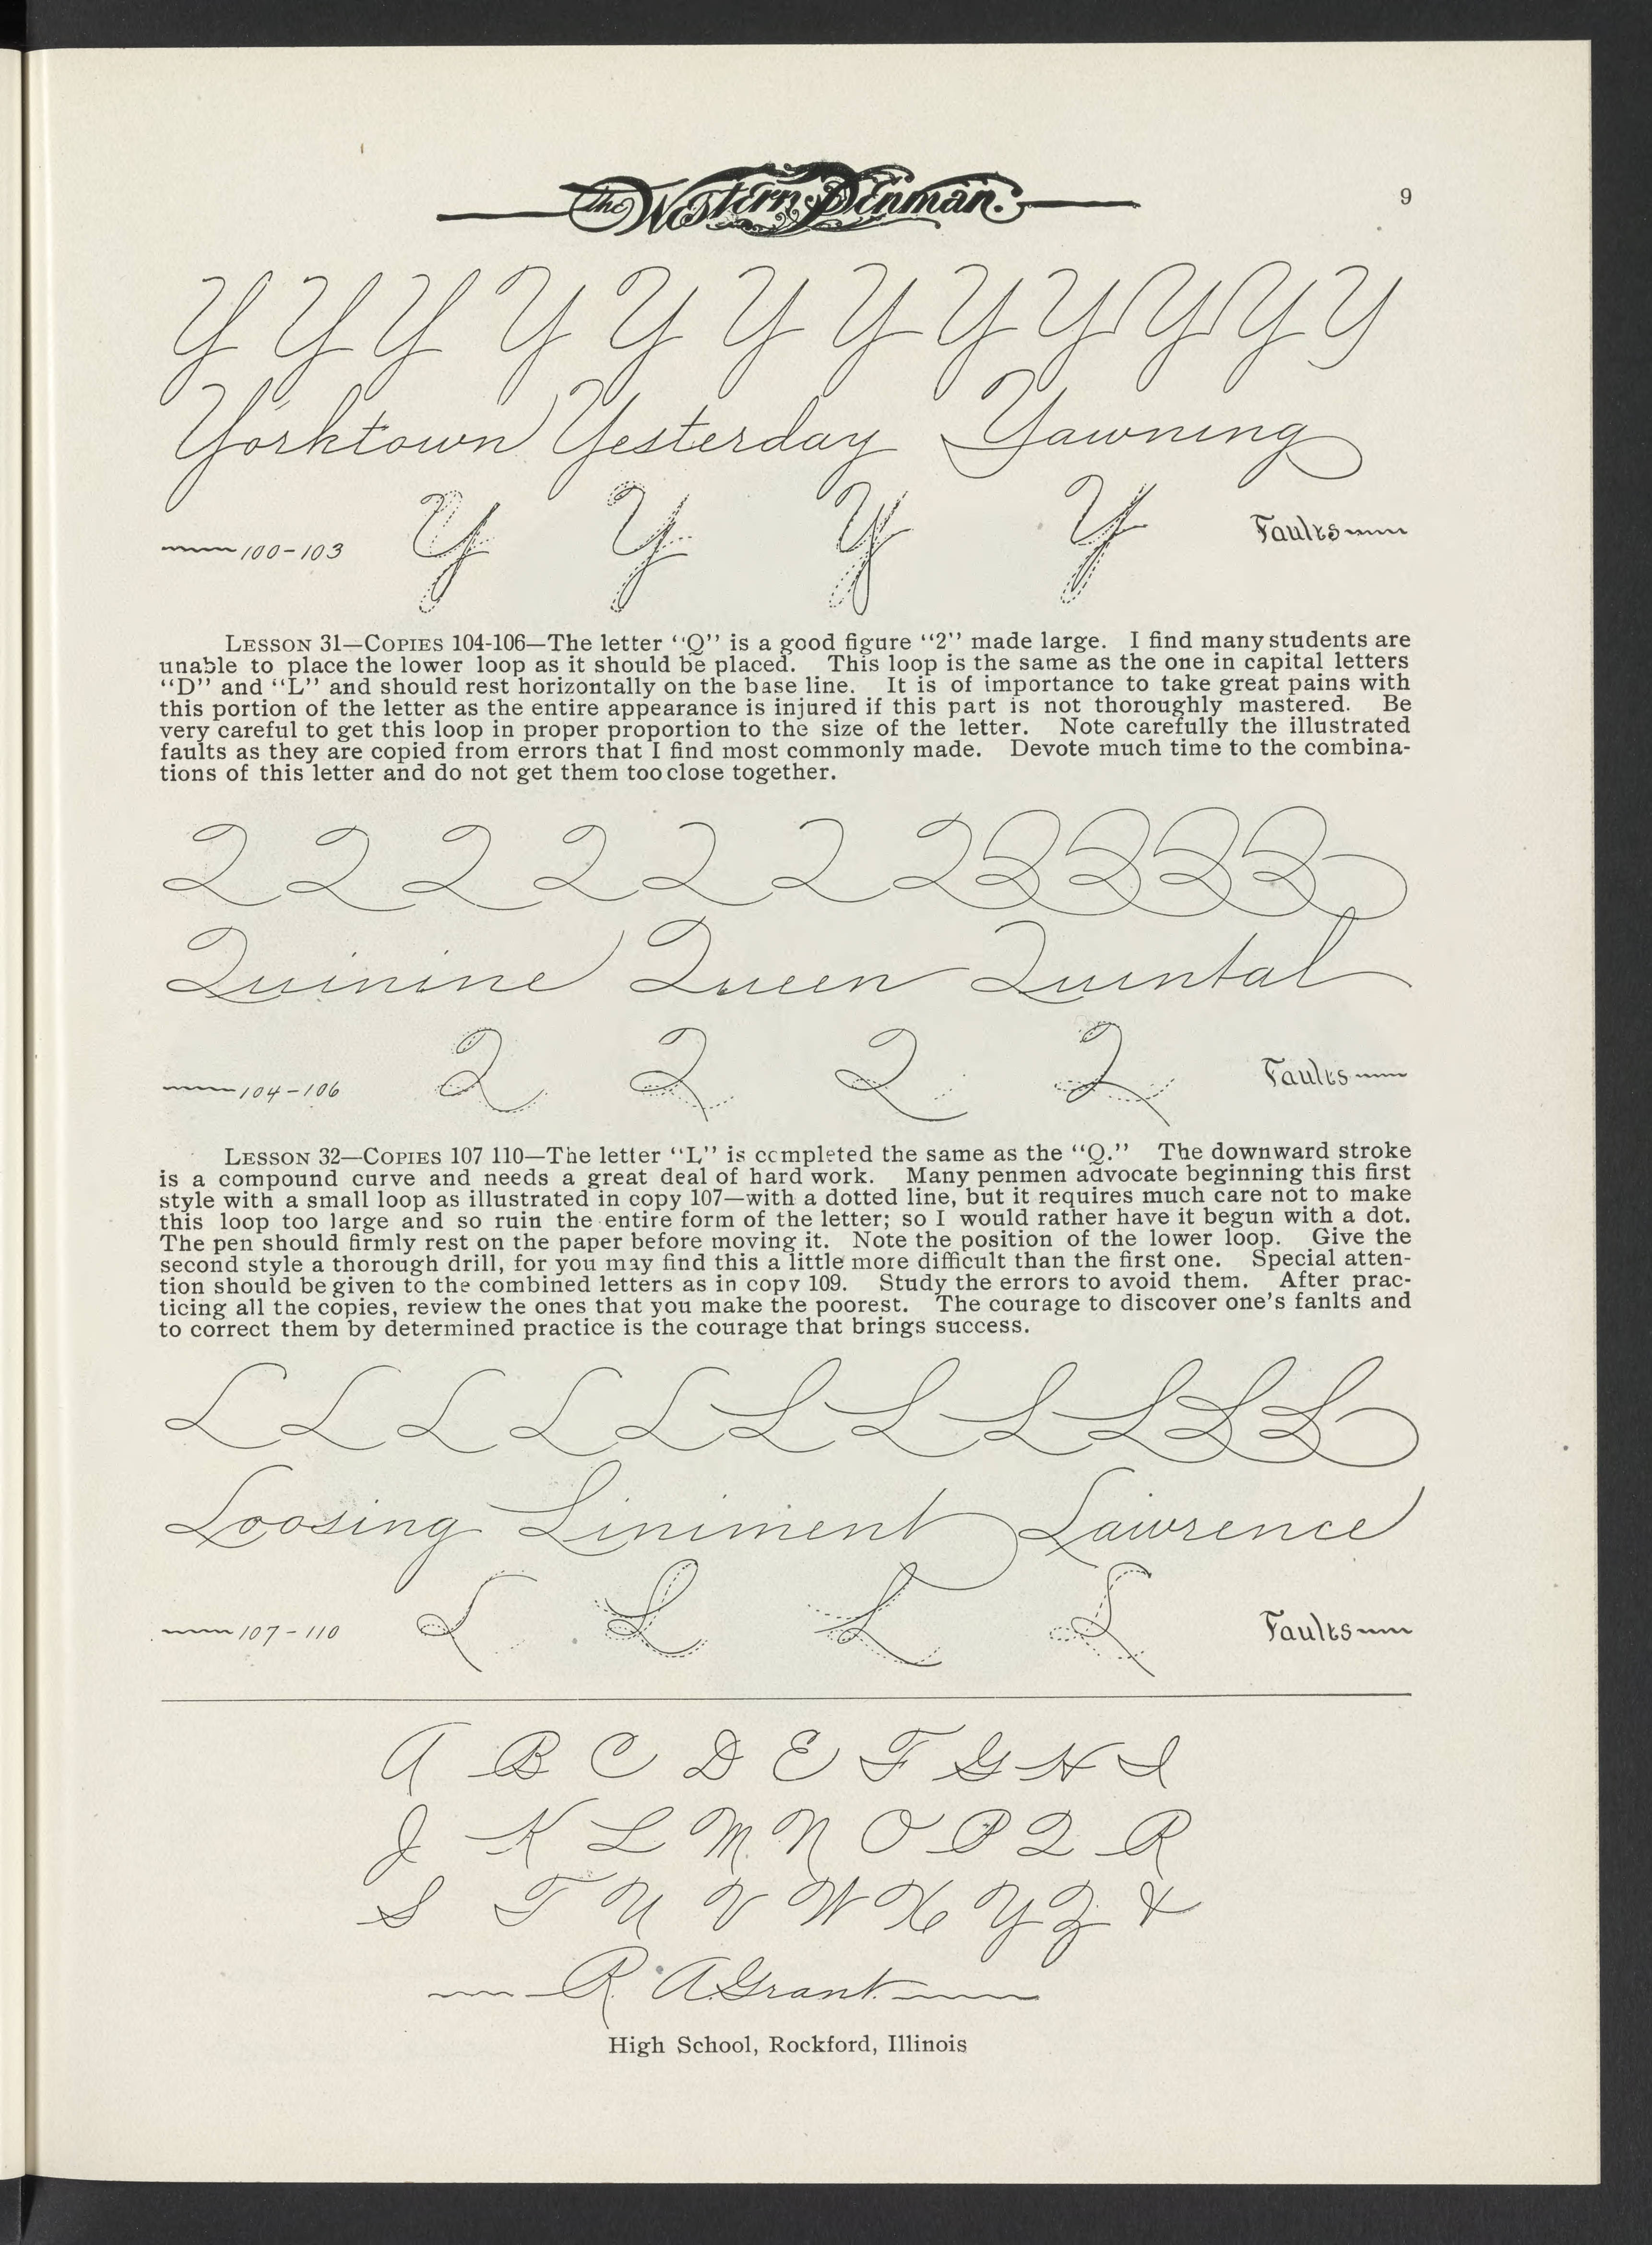 The Western Penman.
9
Y Y Y Y Y Y Y Y Y Y Y Y
Yorktown Yesterday Yawning
100-103 Y Y Y Y Faults
LESSON 31—COPIES 104-106—The letter "Q" is a good figure "2" made large. I find many students are
unable to place the lower loop as it should be placed. This loop is the same as the one in capital letters
"D" and "L" and should rest horizontally on the base line. It is of importance to take great pains with
this portion of the letter as the entire appearance is injured if this part is not thoroughly mastered. Be
very careful to get this loop in proper proportion to the size of the letter. Note carefully the illustrated
faults as they are copied from errors that I find most commonly made. Devote much time to the combina-
tions of this letter and do not get them too close together.
Q Q Q Q Q Q Q Q Q Q Q
Quinine Queen Quintal
104-106 Q Q Q Q Faults
LESSON 32—COPIES 107 110—The letter "L" is ccmpleted the same as the "Q." The downward stroke
is a compound curve and needs a great deal of hard work. Many penmen advocate beginning this first
style with a small loop as illustrated in copy 107—with a dotted line, but it requires much care not to make
this loop too large and so ruin the entire form of the letter; so I would rather have it begun with a dot.
The pen should firmly rest on the paper before moving it. Note the position of the lower loop. Give the
second style a thorough drill, for you may find this a little more difficult than the first one. Special atten-
tion should be given to the combined letters as in copy 109. Study the errors to avoid them. After prac-
ticing all the copies, review the ones that you make the poorest. The courage to discover one's fanlts and
to correct them by determined practice is the courage that brings success.
L L L L L L L L L L L
Loosing Liniment Lawrence
107-110 L L L L Faults
A B C D E F G H I
J K L M N O P Q R
S T U V W X Y Z &
R. A. Grant.
High School, Rockford, Illinois